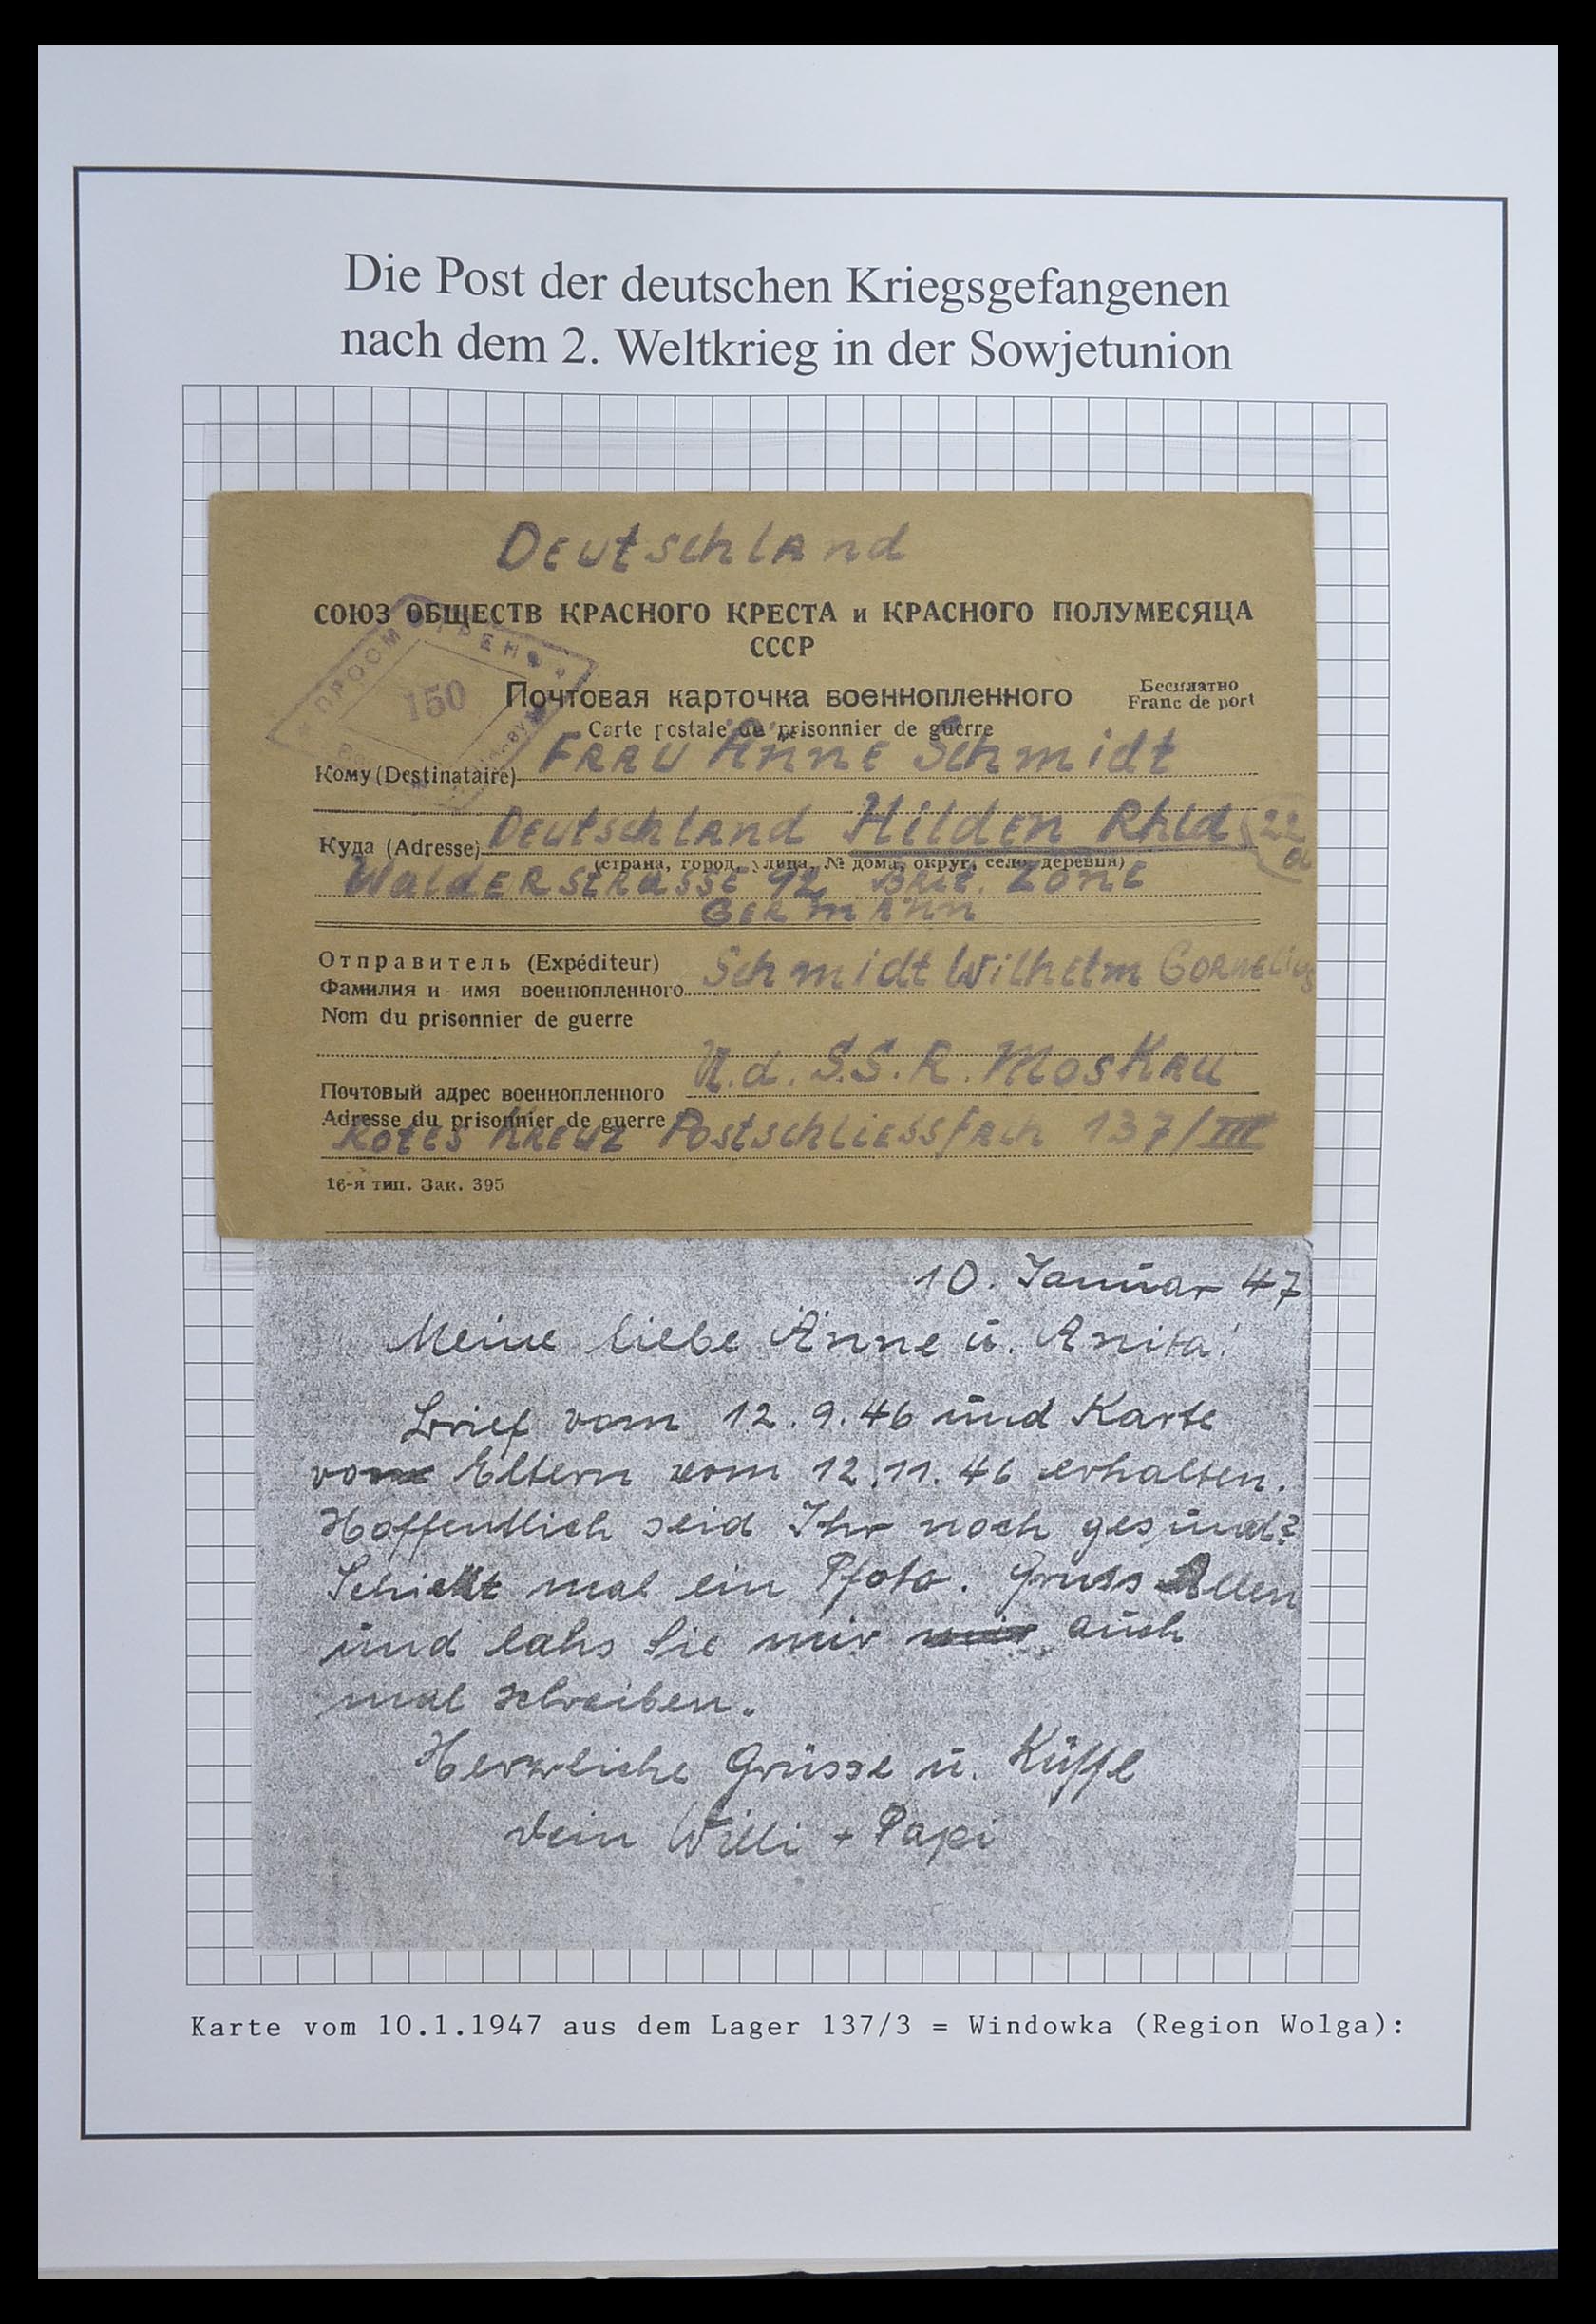 Die Post der deutschen Kriegsgefangenen
nach dem 2. Weltkrieg in der Sowjetunion
Deutschland
СОЮЗ ОБЩЕСТВ КРАСНОГО КРЕСТА и КРАСНОГО ПОЛУМЕСЯЦА
СССР
ПРОСМОТРЕНО
150
Почтовая карточка военнопленного
Бесплатно
Franc de port
Carte postale du prisonnier de guerre
Кому (Destinataire) FRAU Änne Schmidt
Куда (Adresse) Deutschland Hilden Rhld 22a
(страна, город, улица, № дома, округ, село, деревня)
Walderstrasse 92 Brit. Zone
Germann
Отправитель (Expéditeur)
Фамилия и имя военнопленного Schmidt Wilhelm Cornelius
Nom du prisonnier de guerre
Почтовый адрес военнопленного U.d.S.S.R. Moskau
Adresse du prisonnier de guerre
Rotes Kreuz Postschliessfach 137/III
16-я тип. Зак. 395
10. Januar 47
Meine liebe Änne u. Anita!
Brief vom 12.9.46 und Karte
von Eltern vom 12.11.46 erhalten.
Hoffentlich seid Ihr noch gesund?
Schickt mal ein Pfoto. Gruss Allen
und lahs Sie mir auch
mal schreiben.
Herzliche Grüsse u. Küsse
Dein Willi + Papi
Karte vom 10.1.1947 aus dem Lager 137/3 = Windowka (Region Wolga):